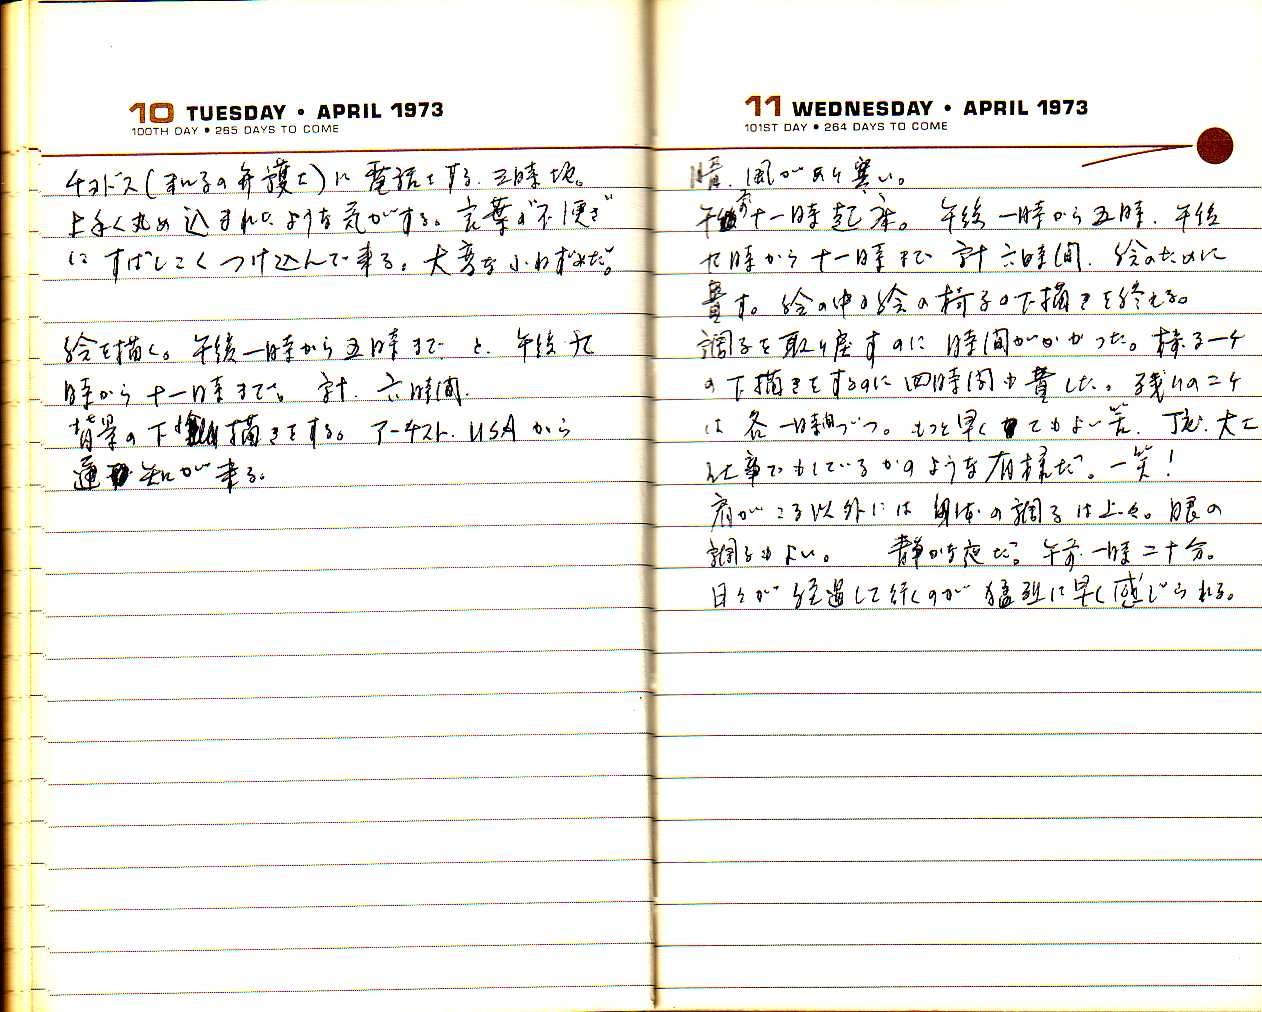 10 TUESDAY • APRIL 1973
100TH DAY • 265 DAYS TO COME
チョドス(まれ子の弁護士)に電話をする、五時頃。
上手く丸め込まれたような気がする。言葉が不便さ
にすばしこくつけ込んで来る。大変な小ねずみだ。
絵を描く。午後一時から五時まで と、午後九
時から十一時まで。計、六時間。
背景の下描きをする。アーチスト、USAから
通知が来る。
11 WEDNESDAY • APRIL 1973
101ST DAY • 264 DAYS TO COME
晴、風があり寒い。
午前十一時起床。午後一時から五時、午後
九時から十一時まで 計六時間、絵のために
費す。絵の中の絵の椅子の下描きを終える。
調子を取り戻すのに時間がかかった。椅子一ケ
の下描きをするのに四時間も費した。残りの二ケ
は各一時間づつ。もっと早くてもよい筈、丁度、大工
仕事でもしているかのような有様だ。一笑!
肩がこる以外には身体の調子は上々。眼の
調子もよい。 静かな夜だ。午前一時二十分。
日々が経過して行くのが猛烈に早く感じられる。